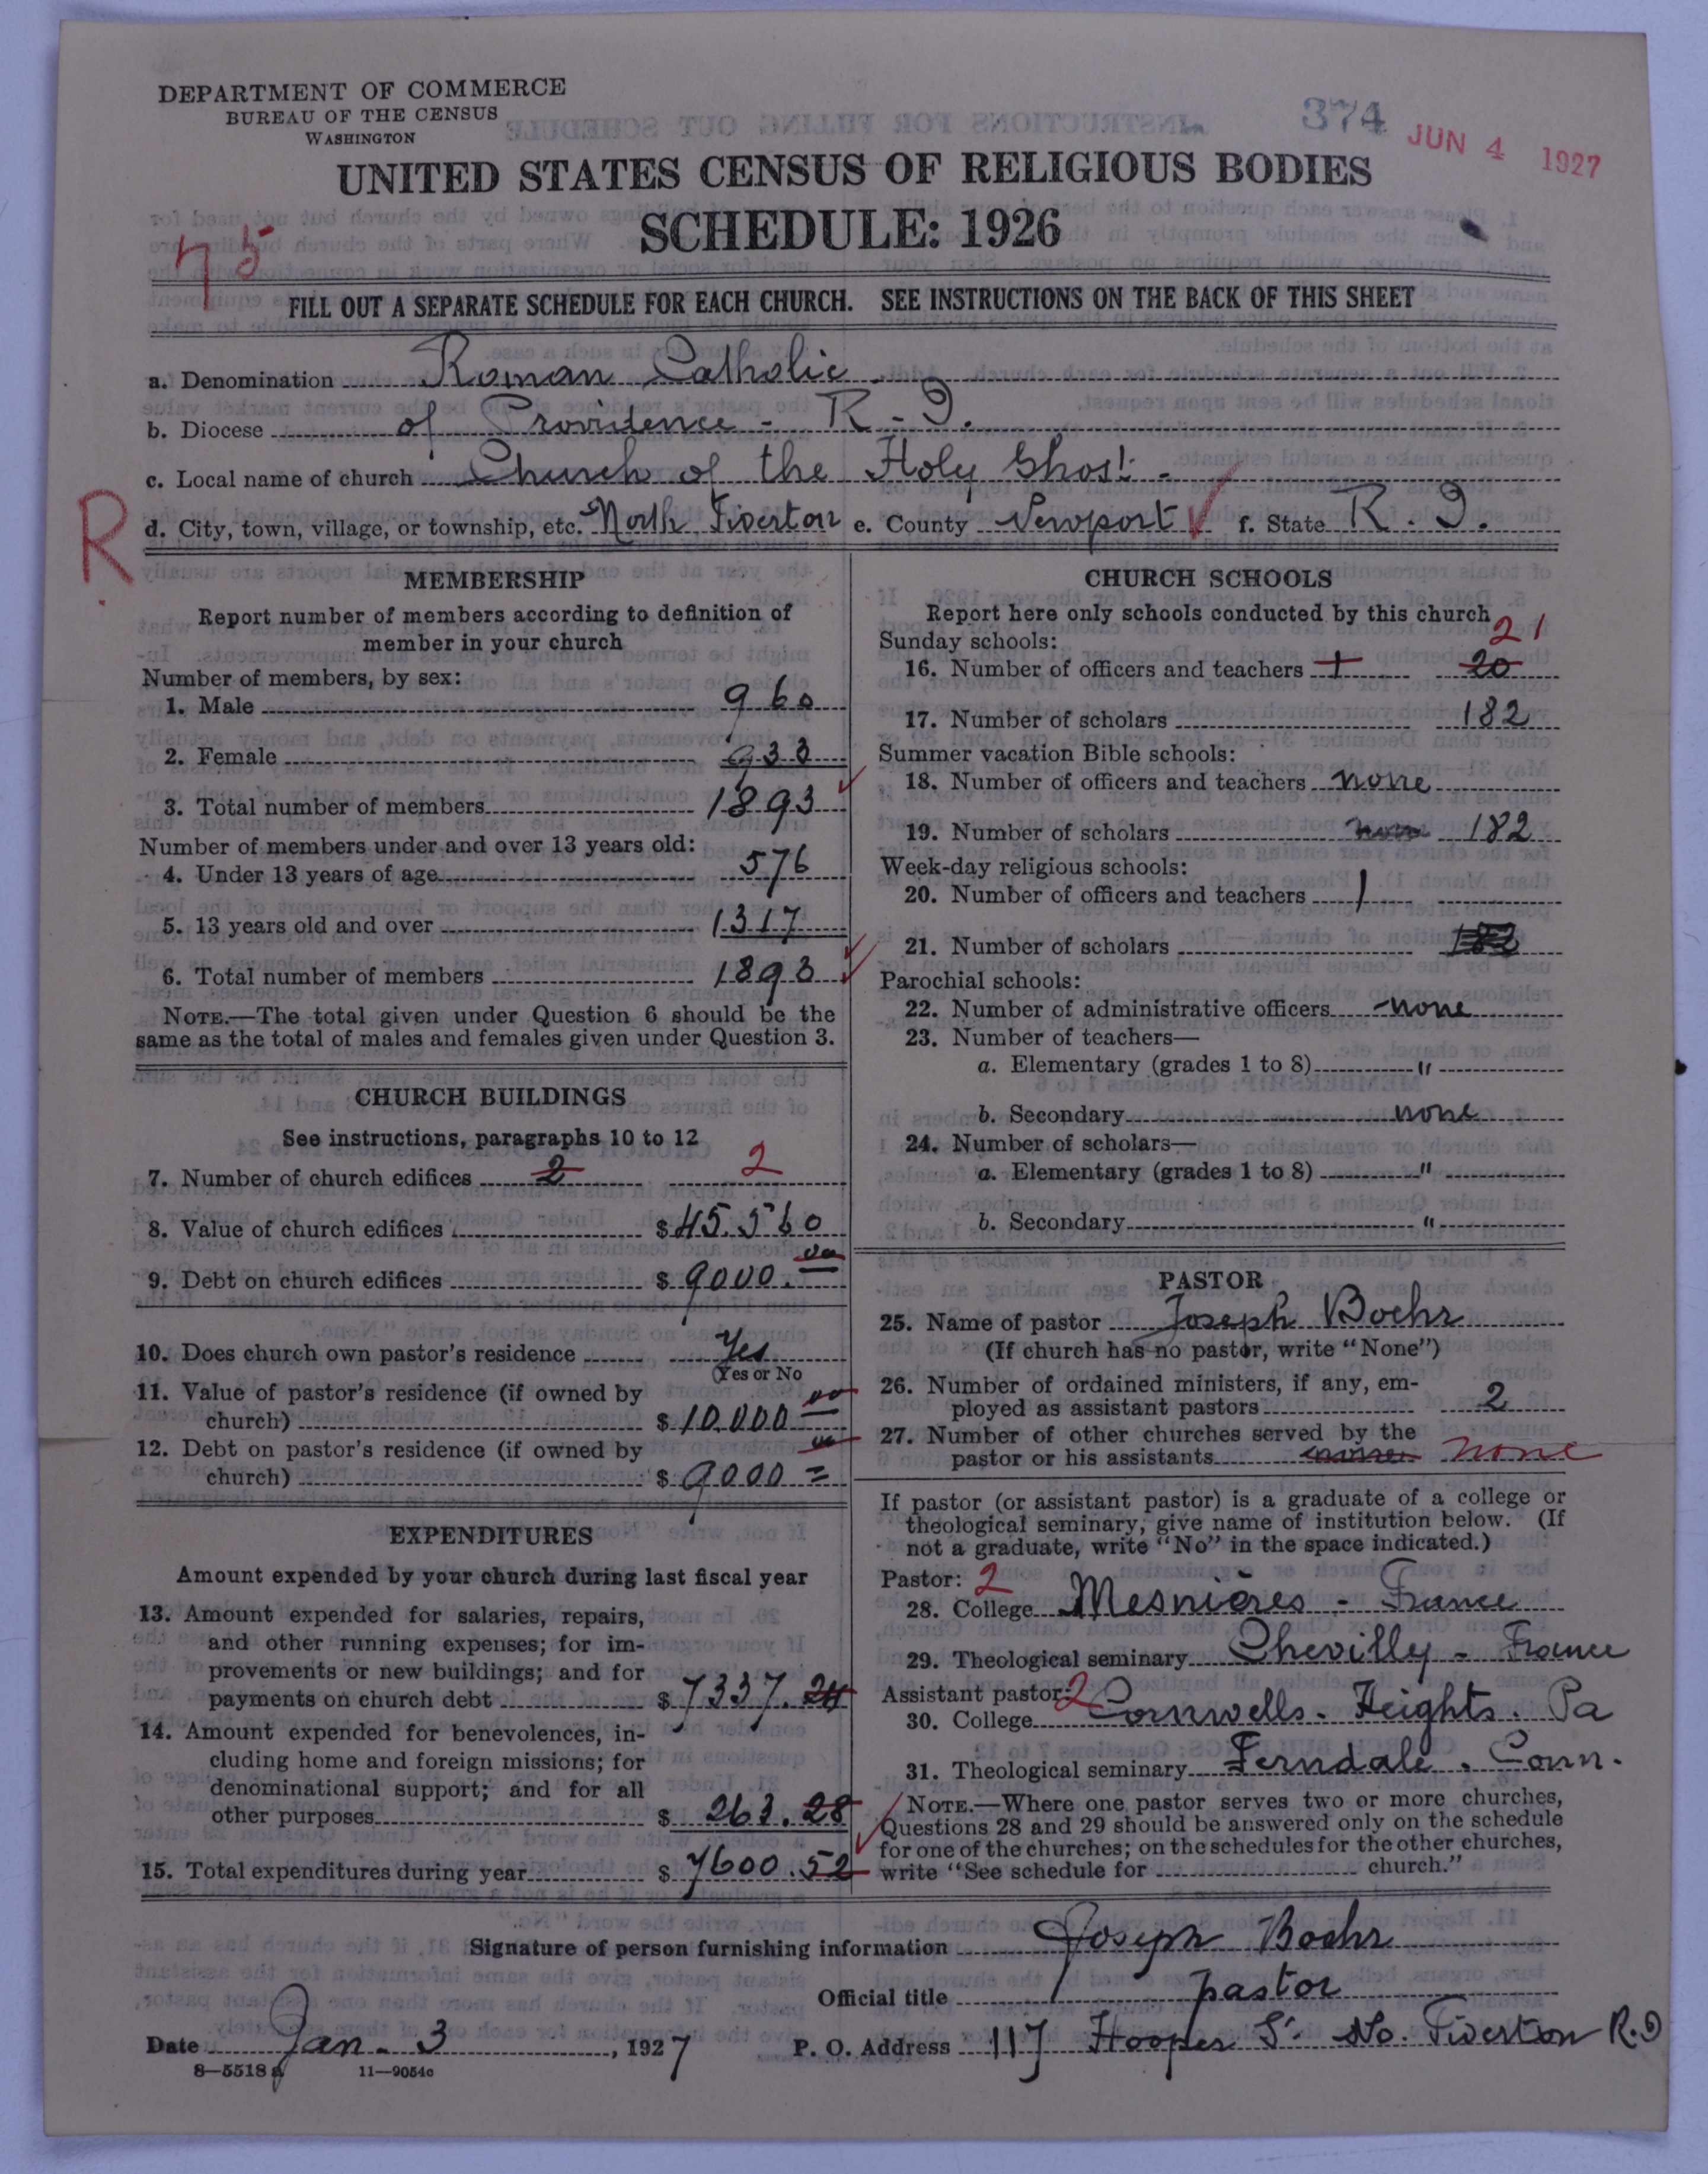 DEPARTMENT OF COMMERCE
BUREAU OF THE CENSUS
WASHINGTON
374
JUN 4 1927
UNITED STATES CENSUS OF RELIGIOUS BODIES
SCHEDULE: 1926
75
FILL OUT A SEPARATE SCHEDULE FOR EACH CHURCH. SEE INSTRUCTIONS ON THE BACK OF THIS SHEET
a. Denomination Roman Catholic
b. Diocese of Providence - R - I.
c. Local name of church Church of the Holy Ghost -
R
d. City, town, village, or township, etc. North Tiverton e. County Newport f. State R. I.
MEMBERSHIP
Report number of members according to definition of
member in your church
Number of members, by sex:
1. Male 960
2. Female 933
3. Total number of members 1893
Number of members under and over 13 years old:
4. Under 13 years of age 576
5. 13 years old and over 1317
6. Total number of members 1893
NOTE.—The total given under Question 6 should be the
same as the total of males and females given under Question 3.
CHURCH BUILDINGS
See instructions, paragraphs 10 to 12
7. Number of church edifices 2 2
8. Value of church edifices $ 45.560
9. Debt on church edifices $ 9000.00
10. Does church own pastor's residence Yes
(Yes or No
11. Value of pastor's residence (if owned by
church) $ 10.000 00
12. Debt on pastor's residence (if owned by
church) $ 9000 00
EXPENDITURES
Amount expended by your church during last fiscal year
13. Amount expended for salaries, repairs,
and other running expenses; for im-
provements or new buildings; and for
payments on church debt $ 7337.24
14. Amount expended for benevolences, in-
cluding home and foreign missions; for
denominational support; and for all
other purposes $ 263.28
15. Total expenditures during year $ 7600.52
CHURCH SCHOOLS
Report here only schools conducted by this church
Sunday schools: 21
16. Number of officers and teachers 1 20
17. Number of scholars 182
Summer vacation Bible schools:
18. Number of officers and teachers none
19. Number of scholars none 182
Week-day religious schools:
20. Number of officers and teachers 1
21. Number of scholars 182
Parochial schools:
22. Number of administrative officers none
23. Number of teachers—
a. Elementary (grades 1 to 8) "
b. Secondary none
24. Number of scholars—
a. Elementary (grades 1 to 8) "
b. Secondary "
PASTOR
25. Name of pastor Joseph Boehr
(If church has no pastor, write "None")
26. Number of ordained ministers, if any, em-
ployed as assistant pastors 2
27. Number of other churches served by the
pastor or his assistants none
If pastor (or assistant pastor) is a graduate of a college or
theological seminary, give name of institution below. (If
not a graduate, write "No" in the space indicated.)
Pastor: 2
28. College Mesnières - France
29. Theological seminary Chevilly - France
Assistant pastor: 2
30. College Cornwells. Heights. Pa
31. Theological seminary Ferndale . Conn.
NOTE.—Where one pastor serves two or more churches,
Questions 28 and 29 should be answered only on the schedule
for one of the churches; on the schedules for the other churches,
write "See schedule for church."
Signature of person furnishing information Joseph Boehr
Official title pastor
Date Jan. 3, 1927 P. O. Address 117 Hooper St. No. Tiverton R.I
8—5518 a 11—9054c